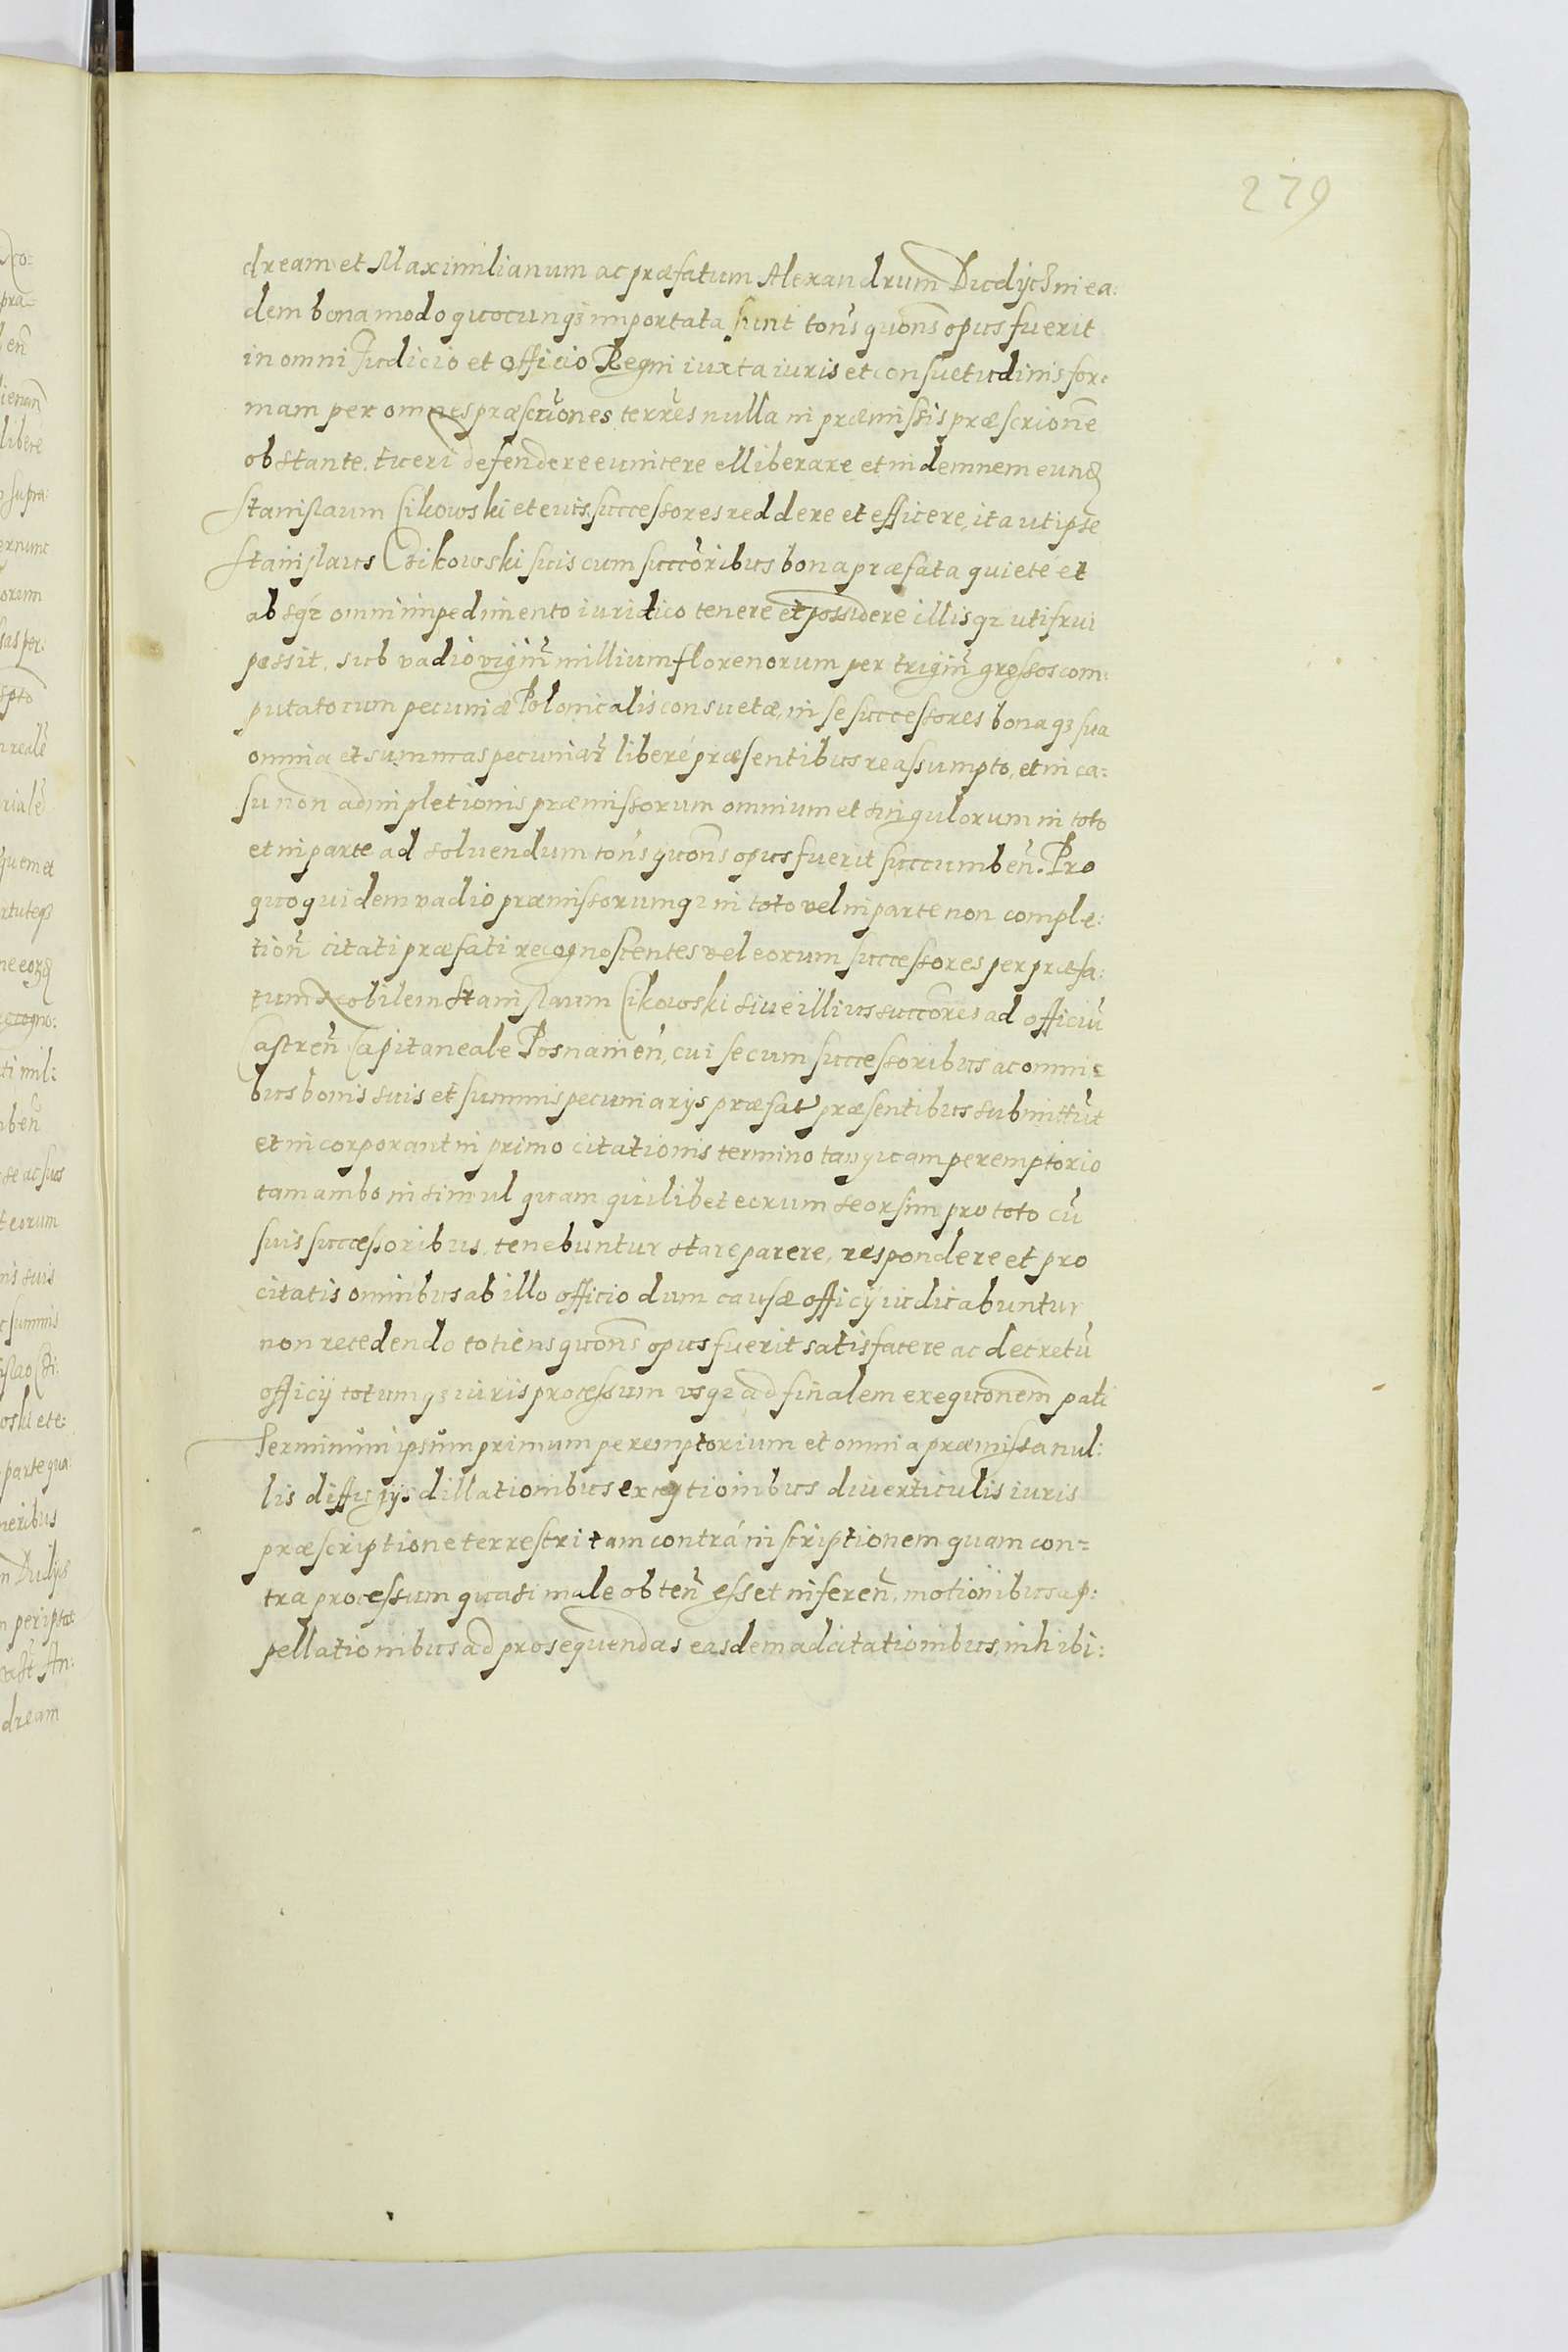 279
dream et Maximilianum ac præfatum Alexandrum Dudycz in ea:
dem bona modo quocunq3 importata sunt tons quons opus fuerit
in omni Judicio et Officio Regni iuxta iuris et consuetudinis for:
mam per omnes præscriones terres nulla in præmissis præscrione
obstante. tueri defendere euincere elliberare et indemnem eund
Stanislaum Cikowski et eius successores reddere et efficere, ita ut ipse
Stanislaus Czikowski suis cum succoribus bona præfata quiete et
absq3 omni impedimento iuridico tenere et possidere illisq3 uti frui
possit. sub vadio vigin millium florenorum per trigin grossos com:
putatorum pecuniæ Polonicalis consuetæ, in se successores bonaq3 sua
omnia et summas pecuniar liberé præsentibus reassumpto, et in ca:
su non adimpletionis præmissorum omnium et singulorum in toto
et in parte ad soluendum tons quons opus fuerit succumben. Pro
quo quidem vadio præmissorumq3 in toto vel in parte non comple:
tion citati præfati recognoscentes vel eorum successores per præfa:
tum Nobilem Stanislaum Cikowski siue illius succores ad officiu
Castren Capitaneale Posnanien, cui se cum successoribus ac omni:
bus bonis suis et summis pecuniarijs præfat præsentibus submittut
et incorporant in primo citationis termino tanquam peremptorio
tam ambo in simul quam quilibet eorum seorsim pro toto cu
suis successoribus, tenebuntur stare parere, respondere et pro
citatis omnibus ab illo officio dum causæ officij iudicabuntur
non recedendo totiens quons opus fuerit satisfacere ac decretu
officij totumq3 iuris processum vsq3 ad finalem exequtonem pati
Terminum ipsum primum peremptorium et omnia præmissa nul:
lis diffugijs dillationibus exceptionibus diuerticulis iuris
præscriptione terrestri tam contrá inscriptionem quam con=
tra processum quasi male obten esset inferen. motionibus ap:
pellationibus ad prosequendas easdem adcitationibus, inhibi: